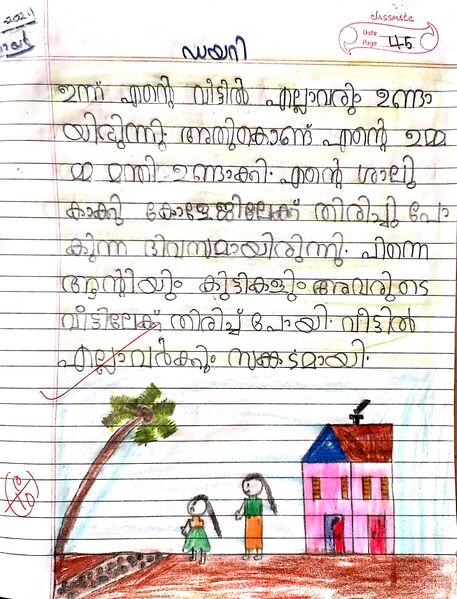 2024
classmate
Date
Page 45
ഡയറി
ഇന്ന് എന്റെ വീട്ടിൽ എല്ലാവരും ഉണ്ടാ
യിരുന്നു. അതുകൊണ്ട് എന്റെ ഉമ്മ
മ്മ മന്തി ഉണ്ടാക്കി. എന്റെ ശാലു
കാക്കു കോളേജിലേക്ക് തിരിച്ചു പോ
കുന്ന ദിവസമായിരുന്നു. പിന്നെ
ആന്റിയും കുട്ടികളും അവരുടെ
വീട്ടിലേക്ക് തിരിച്ച് പോയി. വീട്ടിൽ
എല്ലാവർക്കും സങ്കടമായി.
10/10